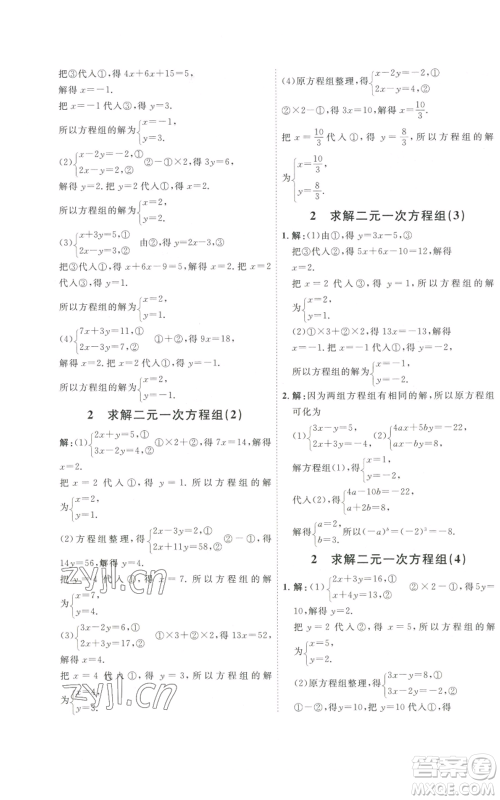 把③代入①,得 4x+6x+15=5,
解得 x=-1.
把 x=-1 代入③,得 y=3.
所以方程组的解为{x=-1, y=3.
(2){x-2y=-2,① 2x-y=2,② ②-①×2,得 3y=6,解得 y=
2. 把 y=2 代入①,得 x=2. 所以方程组的解
为{x=2, y=2.
(3){x+3y=-1,① 3x-2y=8,② 由②,得 2x=2y+3,③
把③代入①,得 x+6x-9=5,解得 x=2. 把 x=2
代入③,得 y=1. 所以方程组的解为{x=2, y=1.
(4){7x+3y=11,① 2x-3y=7,② ①+②,得 9x=18,解得 x=
2. 把 x=2 代入①,得 y=-1. 所以方程组的解
为{x=2, y=-1.
2 求解二元一次方程组(2)
解:(1){2x+y=5,① 3x-2y=4,② ①×2+②,得 7x=14,解得
x=2.
把 x=2 代入①,得 y=1. 所以方程组的解
为{x=2, y=1.
(2)方程组整理,得{2x-3y=2,① 2x+11y=58,② ②-①,得
14y=56,解得 y=4.
把 y=4 代入①,得 x=7. 所以方程组的解
为{x=7, y=4.
(3){3x-2y=6,① 2x+3y=17,② ①×3+②×2,得 13x=52,
解得 x=4.
把 x=4 代入①,得 y=3. 所以方程组的解
为{x=4, y=3.
(4)原方程组整理,得{x-2y=-2,① 2x-y=4,②
②×2-①,得 3x=10,解得 x=10/3.
把 x=10/3 代入①,得 y=8/3. 所以方程组的解
为{x=10/3, y=8/3.
2 求解二元一次方程组(3)
1. 解:(1)由①,得 y=3x-5,③
把③代入②,得 5x+6x-10=12,解得
x=2.
把 x=2 代入③,得 y=1. 所以原方程组的解
为{x=2, y=1.
(2)①×3+②,得 10x=20,解得 x=2.
把 x=2 代入①,得 y=-1. 所以原方程组的解
为{x=2, y=-1.
2. 解:因为两组方程组有相同的解,所以原方程组
可化为
(1){3x-y=5, 2x+3y=-4. (2){4ax+5by=-22, ax-by=8.
解方程组(1),得{x=1, y=-2.
代入(2),得{4a-10b=-22, a+2b=8.
解得{a=2, b=3. 所以(-a)^b=(-2)³=-8.
2 求解二元一次方程组(4)
1. 解:(1){2x+3y=16,① x+4y=13,② ②×2-①,得 5y=
10,解得 y=2.
把 y=2 代入②,得 x=5. 所以原方程组的解
为{x=5, y=2.
(2)原方程组整理,得{3x-y=8,① 3x-5y=-20,②
①-②,得 4y=28,解得 y=7. 把 y=7 代入①,得
zyjl.cn
zyjl.cn
答案圈
MXQE.COM